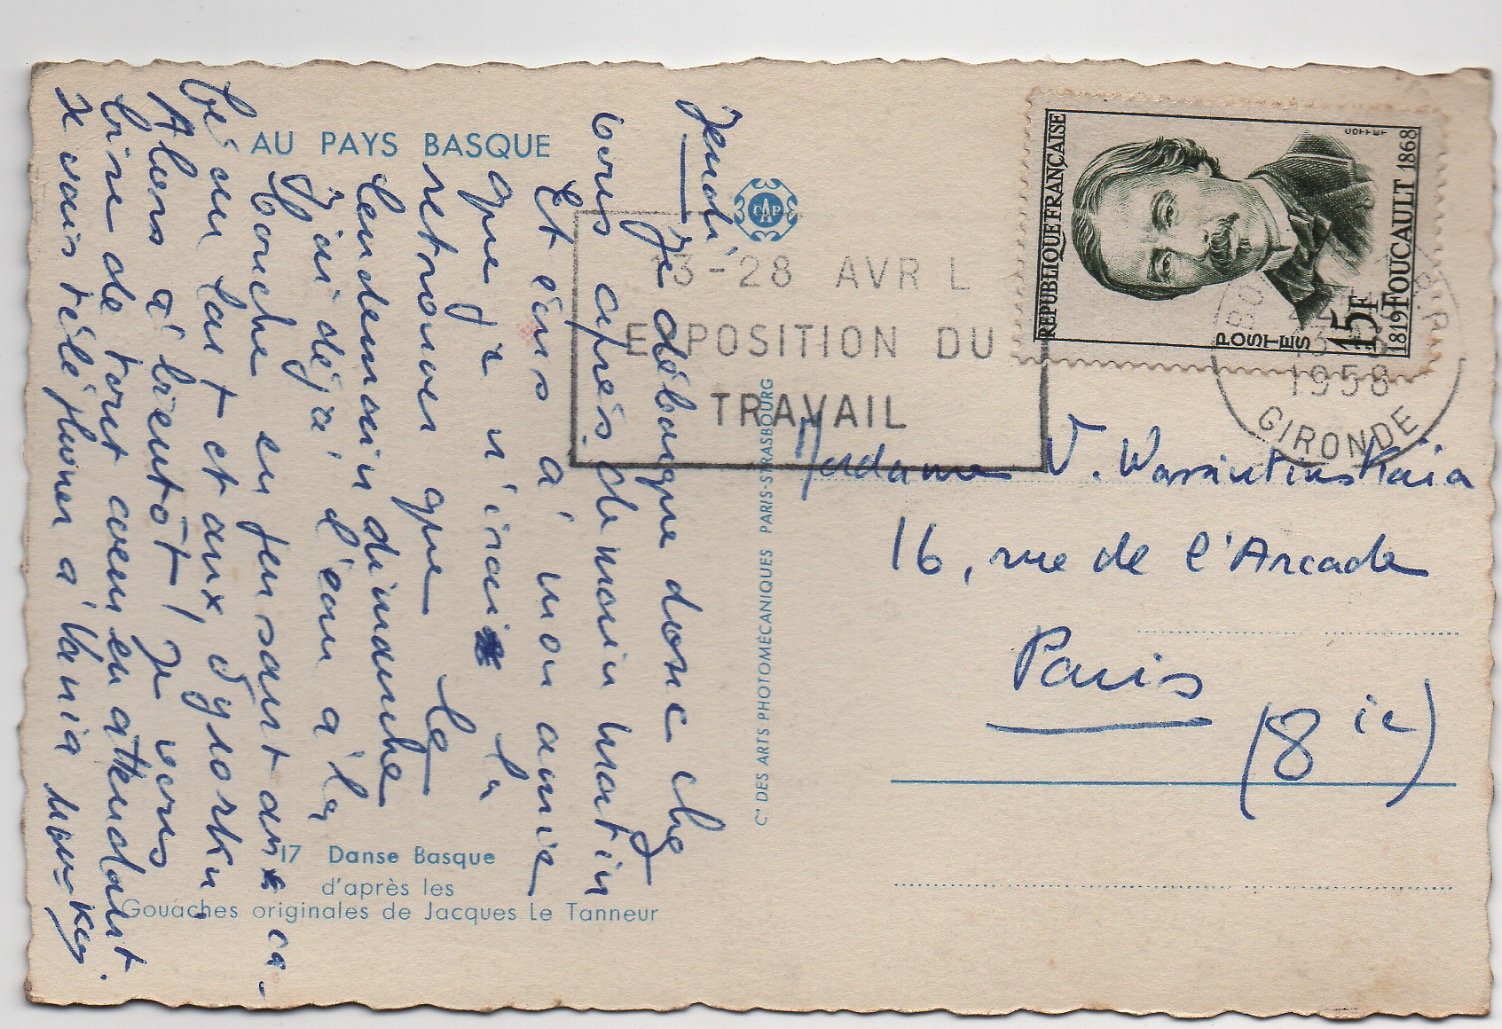 AU PAYS BASQUE
Jeudi
Je débarque donc chez
vous après demain matin
Et écris à mon amie
que je n'irai la
retrouver que le
lendemain dimanche
J'ai déjà l'eau à la
bouche en pensant aux ca-
et aux
Alors à bientôt, je vous
bise de tout coeur en attendant.
Je vais téléphoner à Vania
17 Danse Basque
d'après les
Gouaches originales de Jacques Le Tanneur
CAP
Cie DES ARTS PHOTOMÉCANIQUES PARIS-STRASBOURG
13-28 AVRIL
EXPOSITION DU
TRAVAIL
RÉPUBLIQUE FRANÇAISE
POSTES
15F
1819 FOUCAULT 1868
1958
GIRONDE
Madame V. Wassiutinskaia
16, rue de l'Arcade
Paris
(8ie)